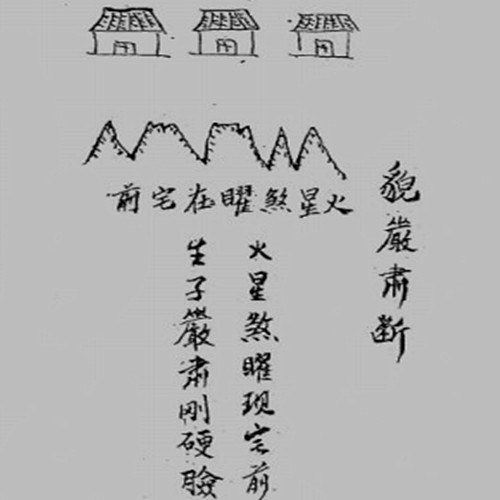 貌嚴肅斷
火星煞曜在宅前
火星煞曜现宅前
生子嚴肅刚硬臉